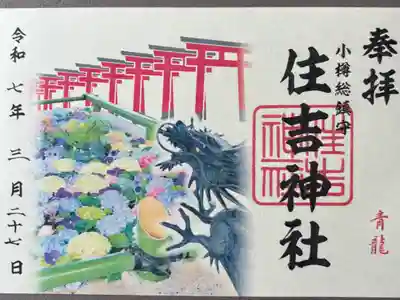 奉拝
小樽総鎮守
住吉神社
青龍
令和七年三月二十七日